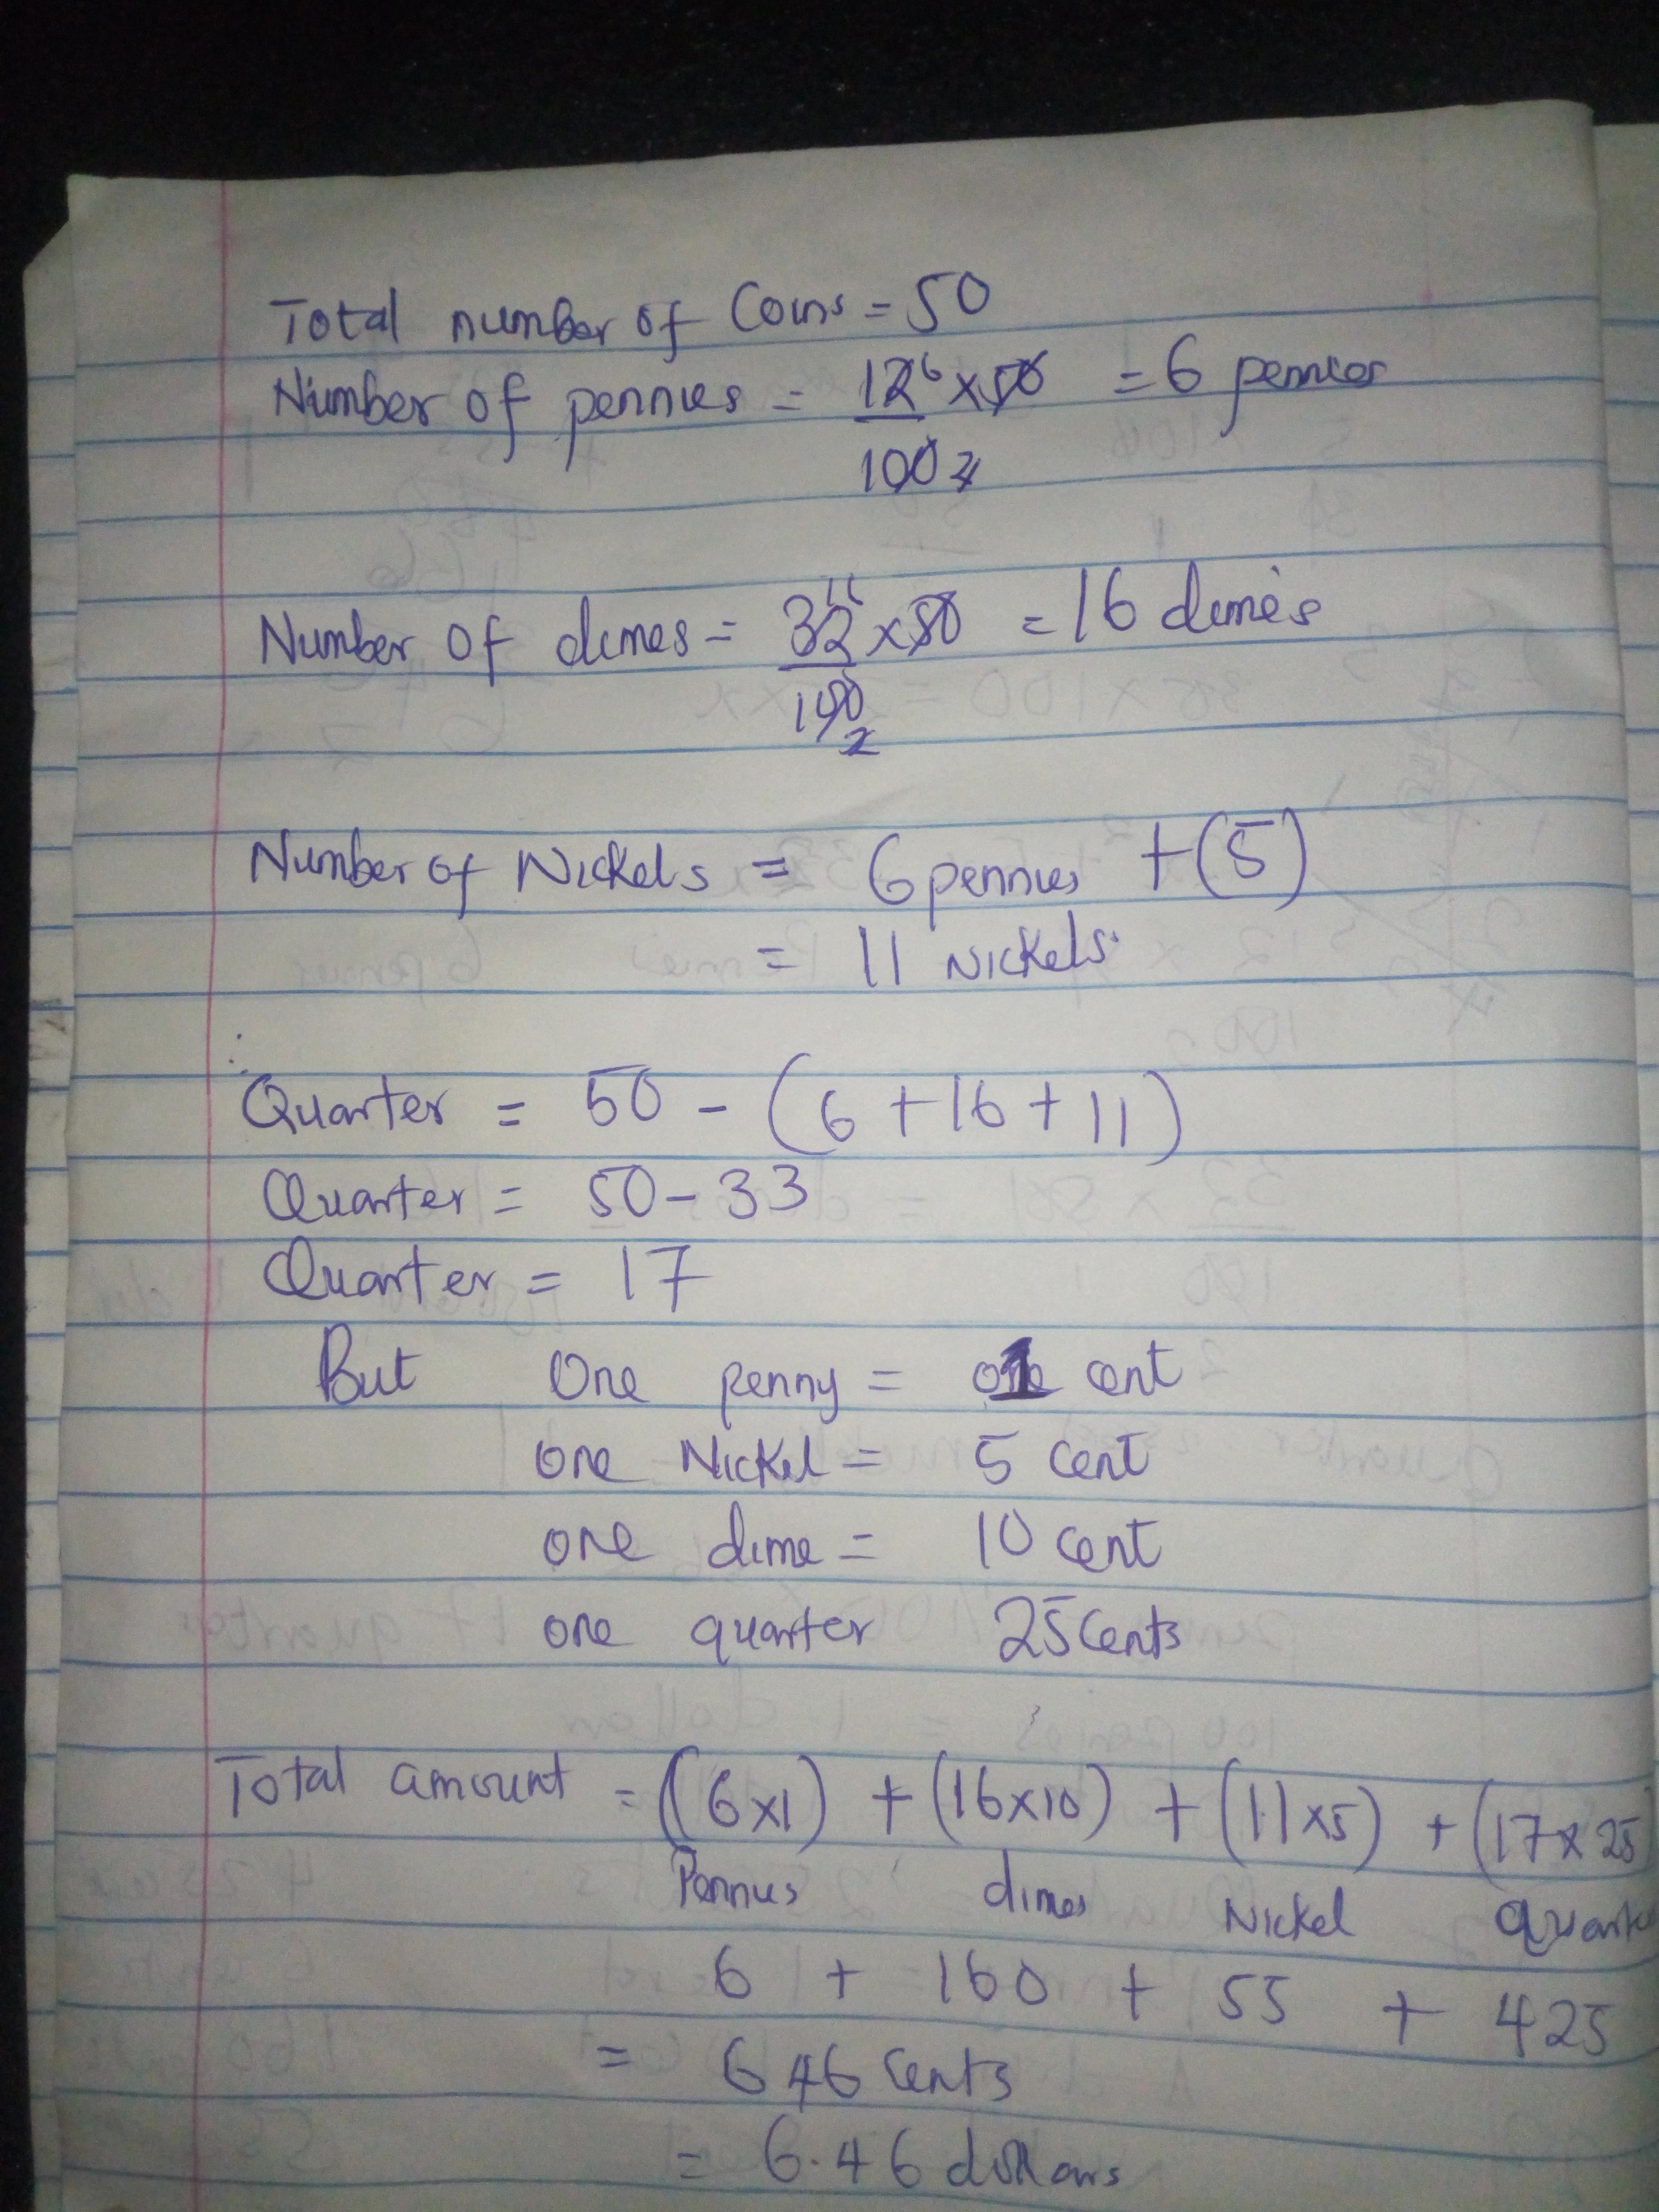 Total number of Coins = 50
Number of pennies = 12 6 x 50 = 6 pennies
100 2
Number of dimes = 32 16 x 50 = 16 dimes
100 2
Number of Nickels = 6 pennies + (5)
= 11 Nickels.
Quarter = 50 - (6 + 16 + 11)
Quarter = 50 - 33
Quarter = 17
But One penny = 1 cent
one Nickel = 5 cent
one dime = 10 cent
one quarter 25 Cents
Total amount = (6x1) + (16x10) + (11x5) + (17x25
Pennies dimes Nickel quarte
6 + 160 + 55 + 425
= 646 Cents
= 6.46 dollars